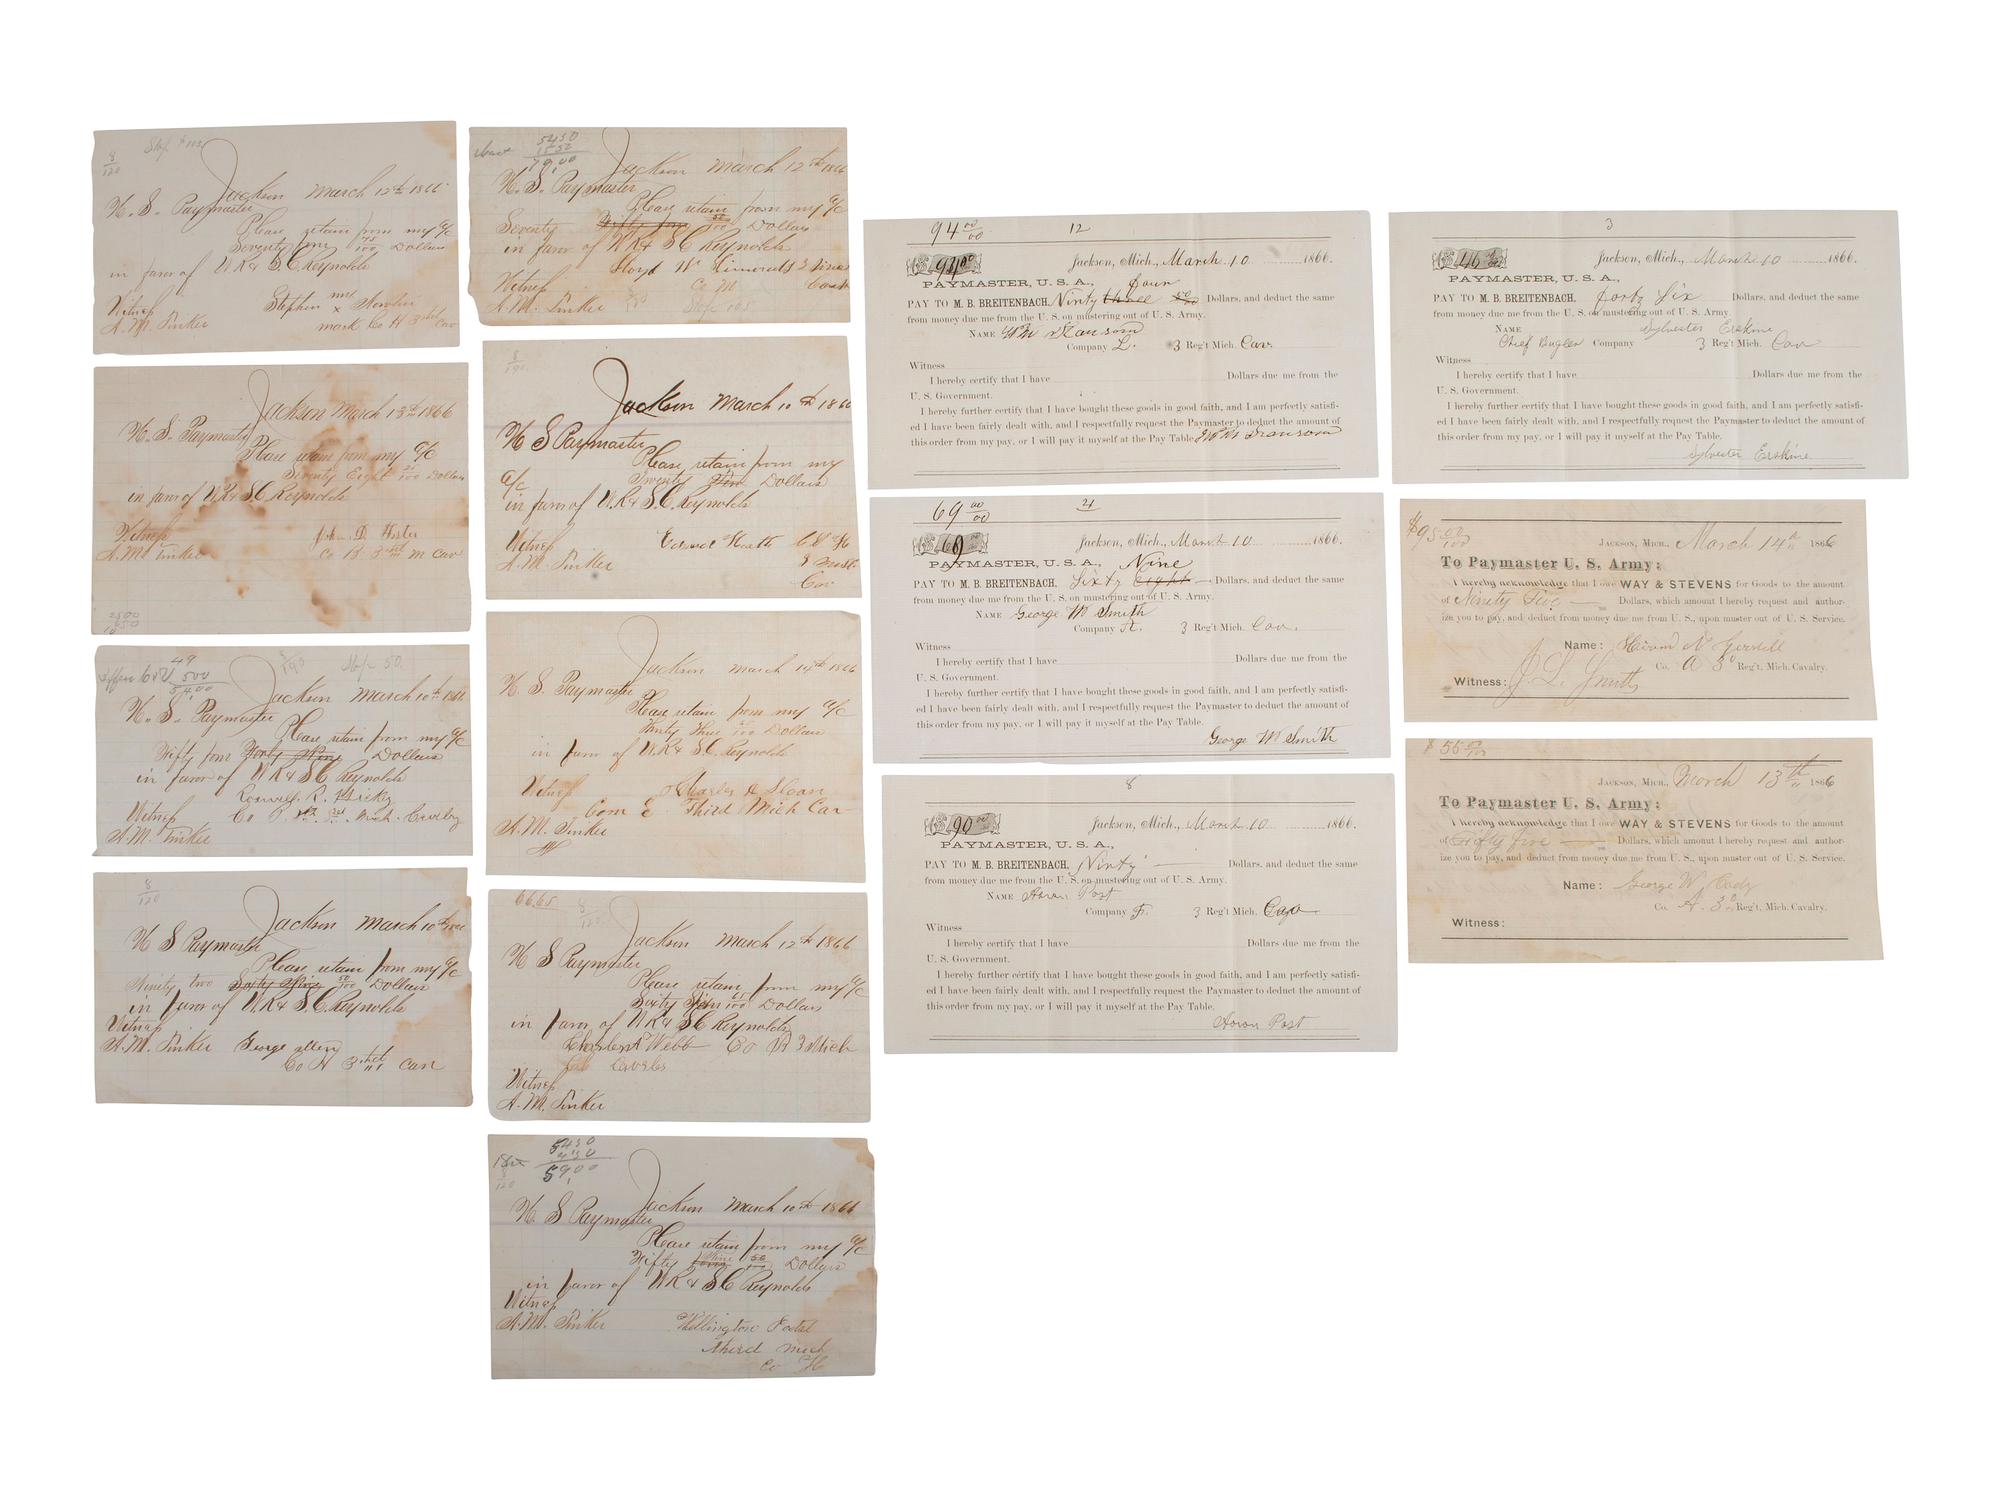 8
120
Jackson March 12th 1866
U. S. Paymaster
Please retain from my a/c
Seventy 45/100 Dollars
in favor of W.R & S.C. Reynolds
Witness
Stephen his x mark
A. M. Tinker
Co H 3rd Cav
Jackson March 13th 1866
U. S. Paymaster
Please retain from my a/c
Seventy Eight /100 Dollars
in favor of W.R & S.C Reynolds
Witness
John D.
A. M. Tinker
Co B 3rd M Cav
2500
49
500
5400
Jackson March 10th 1866
U. S. Paymaster
Please retain from my a/c
Fifty four Forty Nine Dollars
in favor of W.R & S.C Reynolds
Roswell R. Hicky
Witness
Co 3rd Mich. Cavelry
A. M. Tinker
8
120
Jackson March 10th 1866
U S Paymaster
Please retain from my a/c
Ninety two Sixty Nine 50/100 Dollars
in favor of W.R & S.C. Reynolds
Witness
A. M. Tinker George Allen
Co H 3rd Cav
5450
79,00
Jackson March 12th 1866
U. S. Paymaster
Please retain from my a/c
Seventy 50/100 Dollars
in favor of W.R & S C Reynolds
Floyd W
Witness Co M
A. M. Tinker
8
190
Jackson March 10th 1866
U S Paymaster
Please retain from my
a/c Seventy Dollars
in favor of W.R & S.C. Reynolds
Witness
Edward Heath
A. M. Tinker
3
Cav
Jackson March 14th 1866
U. S. Paymaster
Please retain from my a/c
Thirty Three /100 Dollars
in favor of W.R & S.C. Reynolds
Witness Charles H Sloan
Com E Third Mich Cav
A. M. Tinker
66.65
8
120
Jackson March 12th 1866
U S Paymaster
Please retain from my a/c
Sixty Six 65/100 Dollars
in favor of W R & S C Reynolds
Charles A Webb Co 3 Mich
Witness
A. M. Tinker
5450
450
5900
8
120
Jackson March 10th 1866
U S Paymaster
Please retain from my a/c
Fifty Nine 50/100 Dollars
in favor of W R & S C Reynolds
Witness
A. M. Tinker Wellington
third Mich
Co H
94 00/00 12
94 00 Jackson, Mich., March 10 1866.
PAYMASTER, U. S. A., four
PAY TO M. B. BREITENBACH, Ninty three Dollars, and deduct the same
from money due me from the U. S. on mustering out of U. S. Army.
NAME Wm Transom
Company L. 3 Reg't Mich. Cav.
Witness
I hereby certify that I have Dollars due me from the
U. S. Government.
I hereby further certify that I have bought these goods in good faith, and I am perfectly satisfi-
ed I have been fairly dealt with, and I respectfully request the Paymaster to deduct the amount of
this order from my pay, or I will pay it myself at the Pay Table. Wm Transom
69 00/00 4
69 Jackson, Mich., March 10 1866.
PAYMASTER, U. S. A., Nine
PAY TO M. B. BREITENBACH, Sixty Eight Dollars, and deduct the same
from money due me from the U. S. on mustering out of U. S. Army.
NAME George W Smith
Company A. 3 Reg't Mich. Cav.
Witness
I hereby certify that I have Dollars due me from the
U. S. Government.
I hereby further certify that I have bought these goods in good faith, and I am perfectly satisfi-
ed I have been fairly dealt with, and I respectfully request the Paymaster to deduct the amount of
this order from my pay, or I will pay it myself at the Pay Table.
George W Smith
8
90 00 Jackson, Mich., March 10 1866.
PAYMASTER, U. S. A.,
PAY TO M. B. BREITENBACH, Ninty Dollars, and deduct the same
from money due me from the U. S. on mustering out of U. S. Army.
NAME Aaron Post
Company F. 3 Reg't Mich. Cav
Witness
I hereby certify that I have Dollars due me from the
U. S. Government.
I hereby further certify that I have bought these goods in good faith, and I am perfectly satisfi-
ed I have been fairly dealt with, and I respectfully request the Paymaster to deduct the amount of
this order from my pay, or I will pay it myself at the Pay Table.
Aaron Post
3
46 Jackson, Mich., March 10 1866.
PAYMASTER, U. S. A.,
PAY TO M. B. BREITENBACH, forty Six Dollars, and deduct the same
from money due me from the U. S. on mustering out of U. S. Army.
NAME Sylvester Erskine
Chief Bugler Company 3 Reg't Mich. Cav
Witness
I hereby certify that I have Dollars due me from the
U. S. Government.
I hereby further certify that I have bought these goods in good faith, and I am perfectly satisfi-
ed I have been fairly dealt with, and I respectfully request the Paymaster to deduct the amount of
this order from my pay, or I will pay it myself at the Pay Table.
Sylvester Erskine
$95 00/100
JACKSON, MICH., March 14th 1866
To Paymaster U. S. Army:
I hereby acknowledge that I owe WAY & STEVENS for Goods to the amount
of Ninety Five Dollars, which amount I hereby request and author-
ize you to pay, and deduct from money due me from U. S., upon muster out of U. S. Service.
Name: Hiram N.
Co. A 3d Reg't, Mich. Cavalry.
Witness: J. L. Smith
$55 00/100
JACKSON, MICH., March 13th 1866
To Paymaster U. S. Army:
I hereby acknowledge that I owe WAY & STEVENS for Goods to the amount
of Fifty five Dollars, which amount I hereby request and author-
ize you to pay, and deduct from money due me from U. S., upon muster out of U. S. Service.
Name: George W. Cady
Co. A. 3d Reg't, Mich. Cavalry.
Witness: